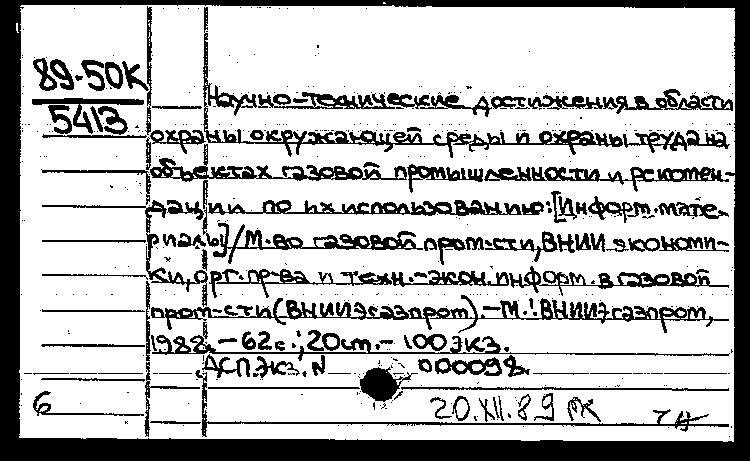 89-50К
5413
Научно-технические достижения в области
охраны окружающей среды и охраны труда на
объектах газовой промышленности и рекомен-
дации по их использованию: [Информ. мате-
риалы] / М-во газовой пром-сти, ВНИИ экономи-
ки, орг. пр-ва и техн.-экон. информ. в газовой
пром-сти (ВНИИЭгазпром). - М.: ВНИИЭгазпром,
1988. - 62 с.; 20 см. - 100 экз.
ДСП. Экз. N 000098.
6
20.XII.89